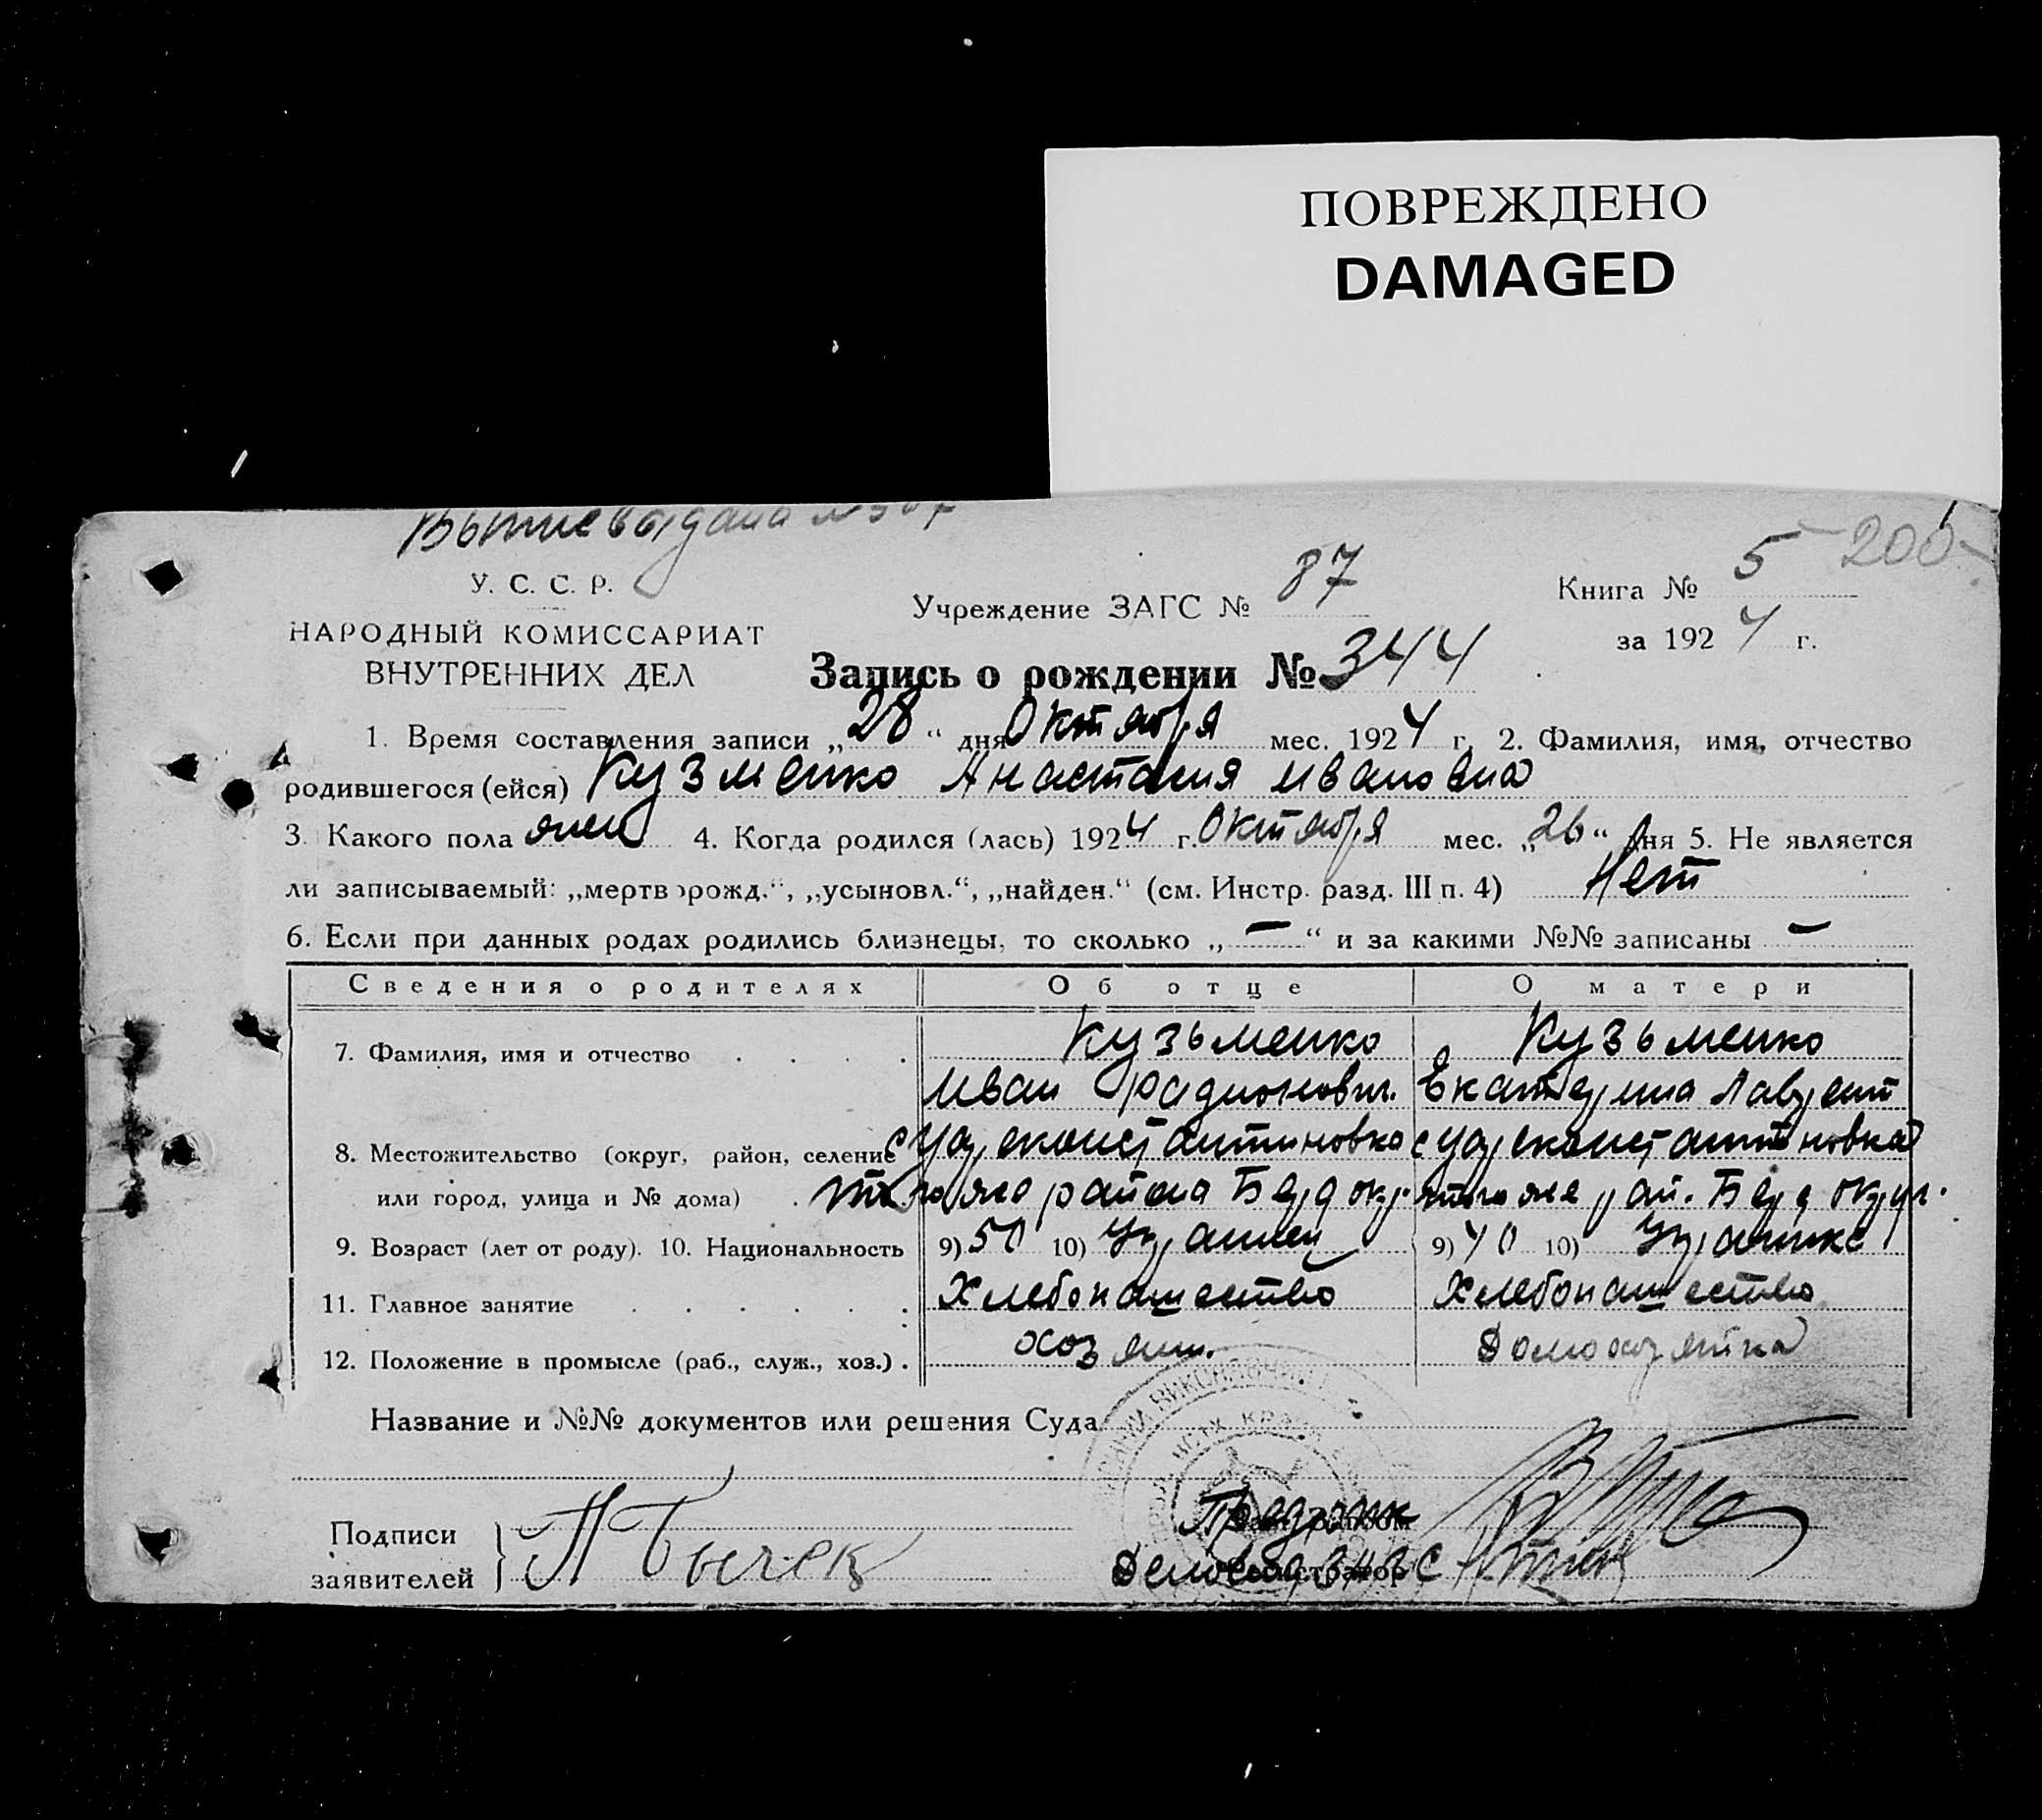 ПОВРЕЖДЕНО
DAMAGED
5 200
У. С. С. Р.
Учреждение ЗАГС № 87
Книга №
НАРОДНЫЙ КОМИССАРИАТ
за 1924 г.
ВНУТРЕННИХ ДЕЛ
Запись о рождении № 344
1. Время составления записи „28“ дня Октября мес. 1924 г. 2. Фамилия, имя, отчество
родившегося (ейся) Кузменко Анастасия Ивановна
3. Какого пола жен 4. Когда родился (лась) 1924 г. Октября мес. „26“ дня 5. Не является
ли записываемый: „мертворожд.“, „усыновл.“, „найден.“ (см. Инстр. разд. III п. 4) Нет
6. Если при данных родах родились близнецы, то сколько „—“ и за какими №№ записаны —
Сведения о родителях Об отце О матери
7. Фамилия, имя и отчество Кузьменко Кузьменко
Иван Радионович. Екатерина Лаврент
8. Местожительство (округ, район, селение
или город, улица и № дома) района Берд окр. рай. Берд округ.
9. Возраст (лет от роду). 10. Национальность 9) 50 10) Украинец 9) 40 10) Украинка
11. Главное занятие Хлебопашество Хлебопашество
12. Положение в промысле (раб., служ., хоз.) хозяин. Домохозяйка
Название и №№ документов или решения Суда
Подписи
заявителей